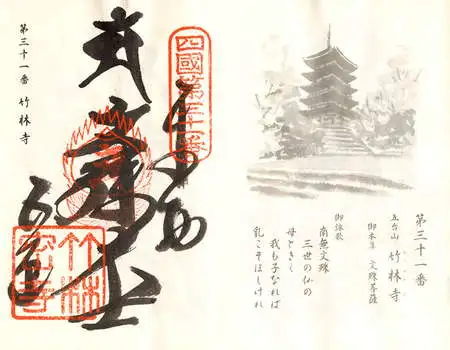 第三十一番
五台山 竹林寺
御本尊 文殊菩薩
御詠歌
南無文殊
三世の仏の
母ときく
我も子なれば
乳こそほしけれ
四國第三十一番
竹林
密寺
第三十一番 竹林寺